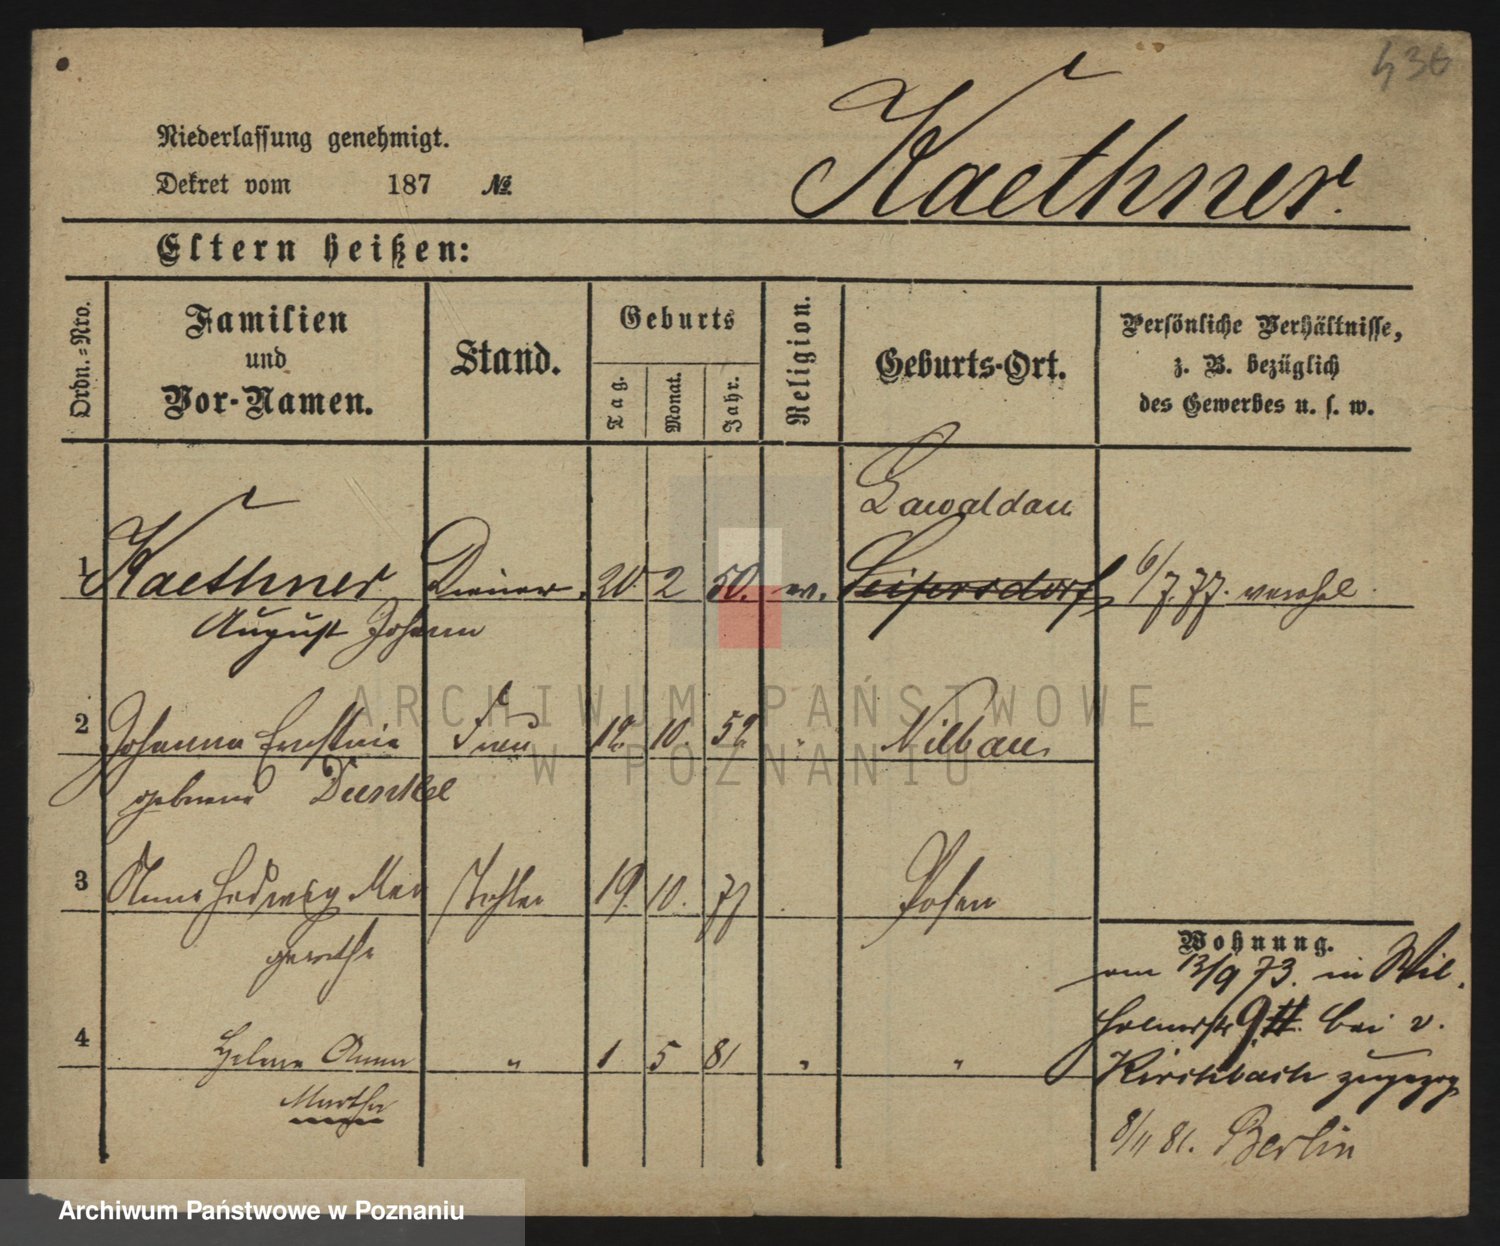 436
Niederlassung genehmigt.
Dekret vom 187 №
Kaethner.
Eltern heißen:
Ordn.-Nro.
Familien und Vor-Namen.
Stand.
Geburts
Tag.
Monat.
Jahr.
Religion.
Geburts-Ort.
Persönliche Verhältnisse,
z. B. bezüglich
des Gewerbes u. s. w.
Lawaldau
1 Kaethner Diener. 20 2 50. ev. Seifersdorf 6/7.77. verehel
August Johann
2 Johanna Ernstine Frau 12. 10. 52 " Nilbau.
geborene Dunkel
3 Anna Hedwig Mar Tochter 19. 10. 77 Posen
garethe
Wohnung.
am 13/9 73. in Wil-
helmstr 9 bei v.
4 Anna " 1 5 81 " "
Kirchbach zugezog
Martha
8/11 81. Berlin
ARCHIWUM PAŃSTWOWE
W POZNANIU
Archiwum Państwowe w Poznaniu